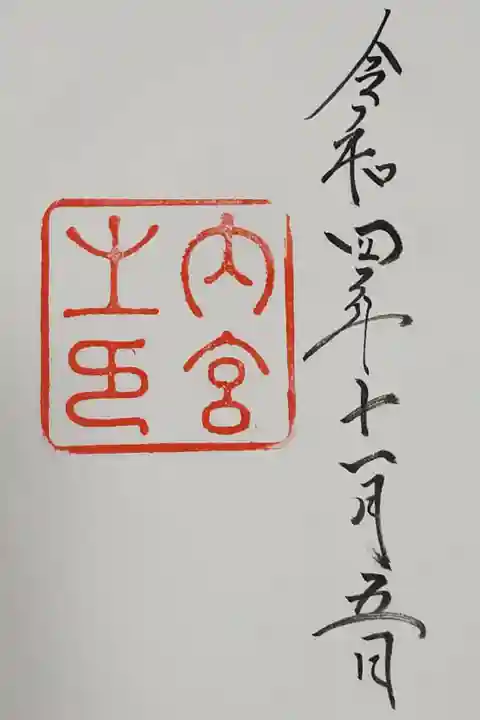 令和四年十一月五日
内宮
之印